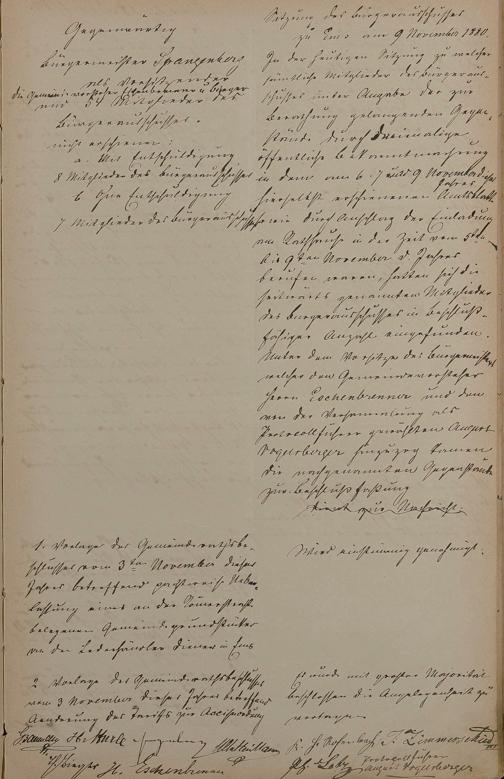 Gegenwärtig
Bürgermeister Spangenberg
als Vorsitzender
die Gemeindevorsteher Eschenbrenner u. Bürger
und 54 Mitglieder des
Bürgerausschusses.
nicht erschienen:
a. Mit Entschuldigung
8 Mitglieder des Bürgerausschusses
b Ohne Entschuldigung
7 Mitglieder des Bürgerausschusses
Sitzung des Bürgerausschusses
zu Ems am 9 November 1880.
In der heutigen Sitzung zu welcher
sämtliche Mitglieder des Bürgeraus-
schusses unter Angabe der zur
Berathung gelangenden Gegen-
stände durch dreimalige
öffentliche Bekanntmachung
in dem am 6 7 und 9 November dieses
Jahres
hierselbst erschienenen Amtsblatt
sowie durch Anschlag der Einladung
am Rathhause in der Zeit vom 5ten
bis 9ten November d Jahres
berufen waren, hatten sich die
seitwärts genannten Mitglieder
des Bürgerausschusses in beschluß-
fähiger Anzahl eingefunden.
Unter dem Vorsitze des Bürgermeisters
welcher den Gemeindevorsteher
Herrn Eschenbrenner und den
von der Versammlung als
Protocollführer gewählten August
Vogelsberger hinzuzog kamen
die nachgenannten Gegenstände
zur Beschlußfaßung
dient zur Nachricht.
1. Vorlage des Gemeinderathsbe-
schlusses vom 3ten November dieses
Jahres betreffend pachtweise Ueber-
lassung eines an der Römerstraße
belegenen Gemeindegrundstückes
an den Lederhändler Diener in Ems
Wird einstimmig genehmigt.
2 Vorlage des Gemeinderathsbeschlusses
vom 3 November dieses Jahres betreffend
Aenderung des Tarifs zur Acciseordnung
Es wurde mit großer Majorität
beschlossen die Angelegenheit zu
vertagen.
Spangenberg
H. Eschenbrenner
F. Zimmerschied
Protocollführer
August Vogelsberger